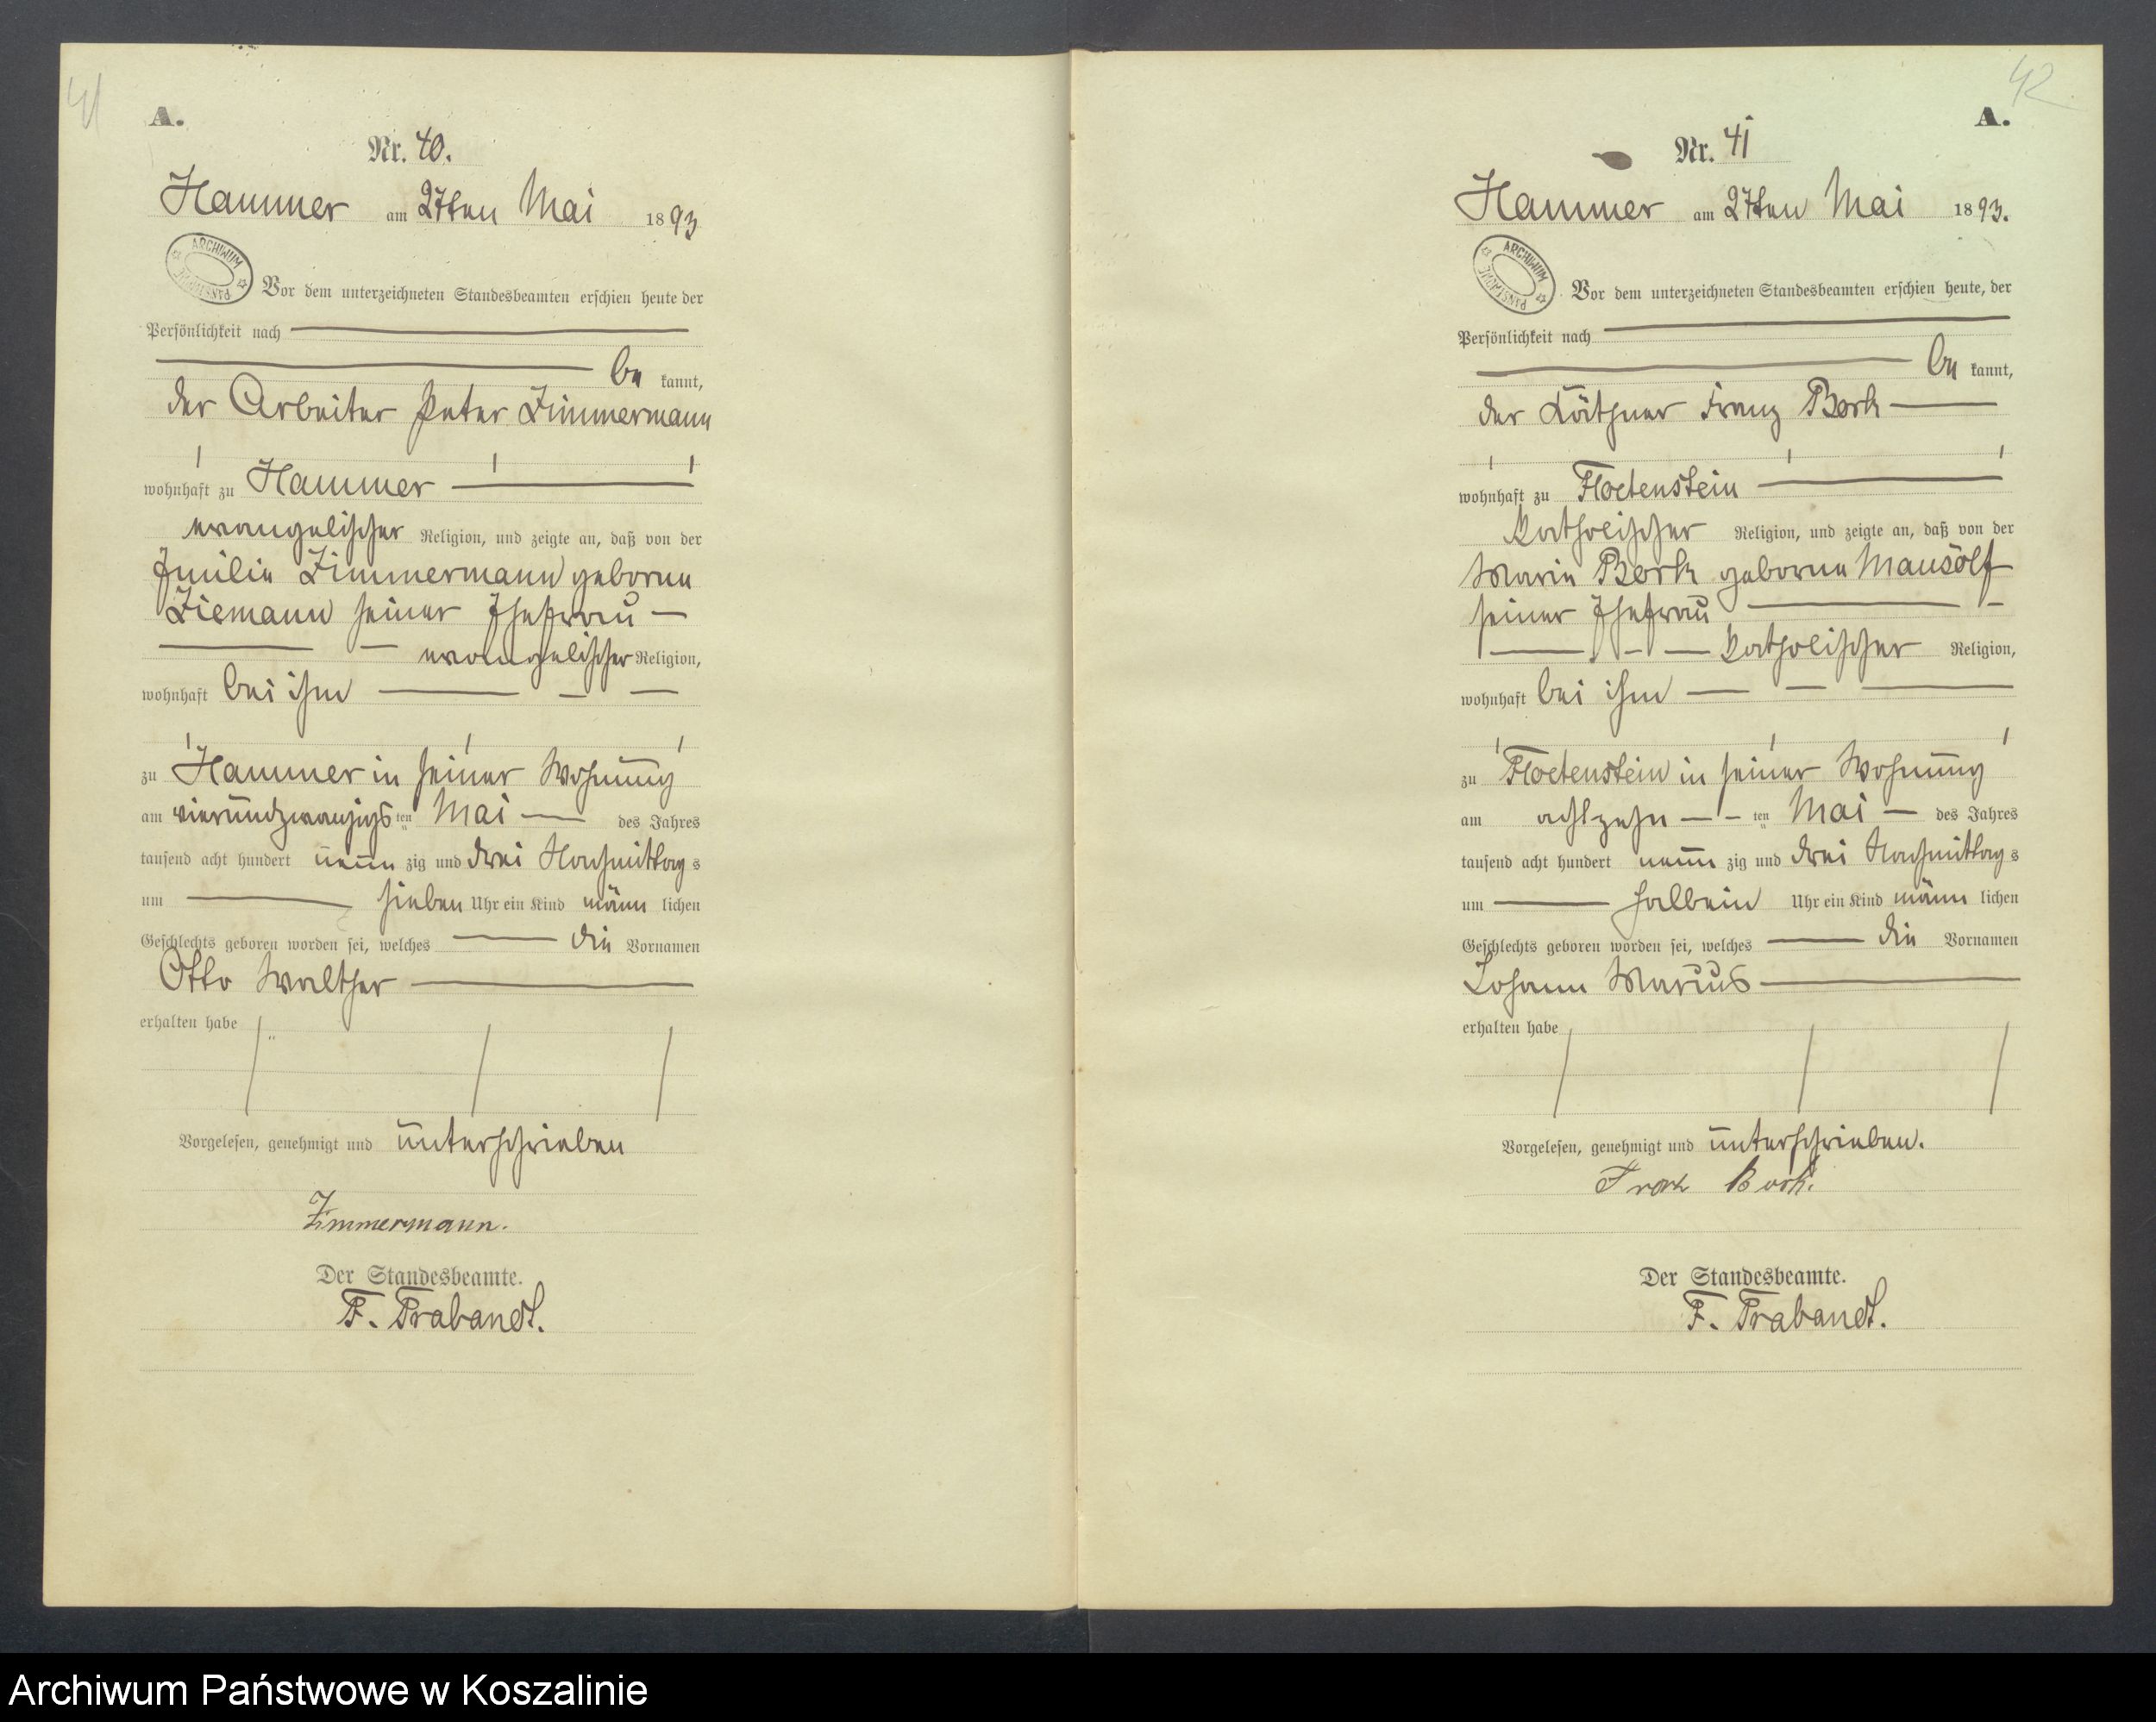 41
A.
Nr. 40.
Hammer am 27ten Mai 1893
ARCHIWUM PAŃSTWOWE
Vor dem unterzeichneten Standesbeamten erschien heute der
Persönlichkeit nach
be kannt,
der Arbeiter Peter Zimmermann
wohnhaft zu Hammer
evangelischer Religion, und zeigte an, daß von der
Emilie Zimmermann geborne
Ziemann seiner Ehefrau
evangelischer Religion,
wohnhaft bei ihm
zu Hammer in seiner Wohnung
am vierundzwanzigs ten Mai des Jahres
tausend acht hundert neun zig und drei Nachmittag s
um sieben Uhr ein Kind männ lichen
Geschlechts geboren worden sei, welches die Vornamen
Otto Walther
erhalten habe
Vorgelesen, genehmigt und unterschrieben
Zimmermann.
Der Standesbeamte.
F. Trabandt.
42
A.
Nr. 41
Hammer am 27ten Mai 1893.
ARCHIWUM PAŃSTWOWE
Vor dem unterzeichneten Standesbeamten erschien heute, der
Persönlichkeit nach
be kannt,
der Käthner Franz Bork
wohnhaft zu Floetenstein
katholischer Religion, und zeigte an, daß von der
Marie Bork geborne Mausolf
seiner Ehefrau
katholischer Religion,
wohnhaft bei ihm
zu Floetenstein in seiner Wohnung
am achtzehn ten Mai des Jahres
tausend acht hundert neun zig und drei Nachmittag s
um halbein Uhr ein Kind männ lichen
Geschlechts geboren worden sei, welches die Vornamen
Johann Marcus
erhalten habe
Vorgelesen, genehmigt und unterschrieben.
Franz Bork.
Der Standesbeamte.
F. Trabandt.
Archiwum Państwowe w Koszalinie